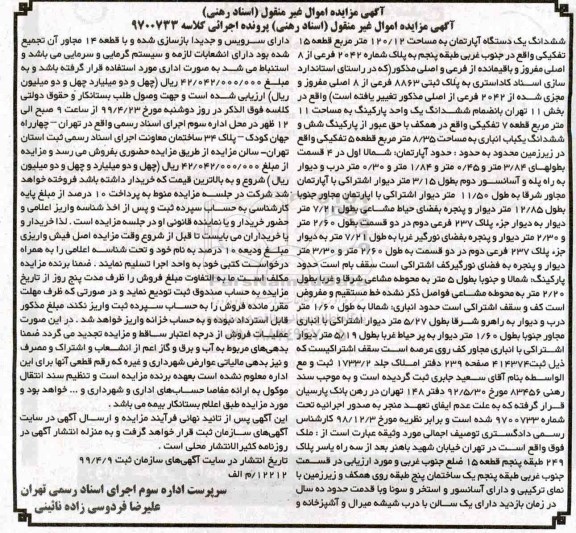 آگهی مزایده اموال غیر منقول (اسناد رهنی)
آگهی مزایده اموال غیر منقول (اسناد رهنی) پرونده اجرائی کلاسه ۹۷۰۰۷۳۳
ششدانگ یک دستگاه آپارتمان به مساحت ۱۲۰/۱۲ متر مربع قطعه ۱۵
تفکیکی واقع در جنوب غربی طبقه پنجم به پلاک شماره ۲۰۴۲ فرعی از ۸
اصلی مفروز و باقیمانده از فرعی و اصلی مذکور(که در راستای استاندارد
سازی اسناد کاداستری به پلاک ثبتی ۸۸۶۳ فرعی از ۸ اصلی مفروز و
مجزی شده از ۲۰۴۲ فرعی از اصلی مذکور تغییر یافته است) واقع در
بخش ۱۱ تهران بانضمام ششدانگ یک واحد پارکینگ به مساحت ۱۱
متر مربع قطعه ۷ تفکیکی واقع در همکف با حق عبور از پارکینگ شش و
ششدانگ یکباب انباری به مساحت ۸/۳۵ متر مربع قطعه ۵ تفکیکی واقع
در زیرزمین محدود به حدود : حدود آپارتمان: شمالا اول در ۴ قسمت
بطولهای ۳/۸۴ متر و ۰/۴۵ متر و ۱/۸۴ متر و ۰/۳۰ متر درب و دیوار
به راه پله و آسانسور دوم بطول ۳/۱۵ متر دیوار اشتراکی با آپارتمان
مجاور شرقا به طول ۱۱/۵۰ متر دیوار اشتراکی با اپارتمان مجاور جنوبا
بطول ۱۲/۸۵ متر دیوار و پنجره بفضای حیاط مشاعی بطول ۷/۲۱ متر
دیوار به دیوار جزء پلاک ۲۳۷ فرعی دوم در دو قسمت بطول ۲/۶۰ متر
و ۲/۳۰ متر دیوار و پنجره بفضای نورگیر غربا به طول ۷/۲۱ متر به دیوار
جزء پلاک ۲۳۷ فرعی دوم در دو قسمت به طول ۲/۶۰ متر و ۳/۳۰ متر
دیوار و پنجره به فضای نورگیر کف اشتراکی است سقف بام است حدود
پارکینگ: شمالا و جنوبا بطول ۵ متر به محوطه مشاعی شرقا و غربا بطول
۲/۲۰ متر به محوطه مشاعی فواصل ذکر نشده خط مستقیم و مفروض
است کف و سقف اشتراکی است حدود انباری: شمالا به طول ۱/۶۰ متر
درب و دیوار به راهرو شرقا بطول ۵/۲۷ متر دیوار اشتراکی با انباری
مجاور جنوبا بطول ۱/۶۰ متر دیوار به پر حیاط غربا بطول ۵/۱۹ متر دیوار
اشتراکی با انباری مجاور کف روی عرصه است سقف اشتراکیست که
ذیل ثبت ۴۱۴۳۷۴ صفحه ۲۳۹ دفتر املاک جلد ۱۷۳۳/۲ ثبت و مع
الواسطه بنام آقای سعید جابری ثبت گردیده است و به موجب سند
رهنی ۸۳۴۵۶ مورخ ۹۲/۵/۳۰ دفتر ۱۴۸ تهران در رهن بانک پارسیان
قرار گرفته که به علت عدم ایفای تعهد منجر به صدور اجرائیه تحت
شماره ۹۷۰۰۷۳۳ شده است و برابر نظریه مورخ ۹۸/۱۲/۳ کارشناس
رسمی دادگستری توصیف اجمالی مورد وثیقه عبارت است از : ملک
فوق واقع است در تهران خیابان شهید باهنر بعد از سه راه یاسر پلاک
۲۴۹ طبقه پنجم قطعه ۱۵ ضلع جنوب غربی و مورد ارزیابی در قسمت
جنوب غربی طبقه پنجم یک ساختمان پنج طبقه روی همکف و زیرزمین با
نمای ترکیبی و دارای آسانسور و استخر و سونا وبا قدمت حدود ده سال
در زمان بازدید دارای یک سالن با درب شیشه میرال و آشپزخانه و
دارای سرویس و جدیدا بازسازی شده و با قطعه ۱۴ مجاور آن تجمیع
شده بود دارای انشعابات لازمه و سیستم گرمایی و سرمایی می باشد و
استنباط می شد به صورت اداری مورد استفاده قرار گرفته باشد و به
مبلغ ۴۲/۰۴۲/۰۰۰/۰۰۰ ریال (چهل و دو میلیارد چهل و دو میلیون
ریال) ارزیابی شده است و جهت وصول طلب بستانکار و حقوق دولتی
کلاسه فوق الذکر در روز دوشنبه مورخ ۹۹/۴/۲۳ از ساعت ۹ صبح الی
۱۲ ظهر در محل اداره سوم اجرای اسناد رسمی واقع در تهران – چهارراه
جهان کودک – پلاک ۳۳ ساختمان معاونت اجرای اسناد رسمی ثبت استان
تهران- سالن مزایده از طریق مزایده حضوری بفروش می رسد و مزایده
از مبلغ ۴۲/۰۴۲/۰۰۰/۰۰۰ ریال (چهل و دو میلیارد و چهل و دو میلیون
ریال) شروع و به بالاترین قیمت که خریدار داشته باشد فروخته خواهد
شد شرکت در جلسه مزایده منوط به پرداخت ۱۰ درصد از مبلغ پایه
کارشناسی به حساب سپرده ثبت و پس از اخذ شناسه واریز اعلامی و
حضور خریدار و یا نماینده قانونی او در جلسه مزایده است . لذا خریدار و
یا خریداران می بایست تا قبل از شروع وقت مزایده اصل فیش واریزی
مبلغ و دیعه ۱۰ درصد به نام خود و تحت شناسه اعلامی را به همراه
درخواست کتبی خود به واحد اجرا تسلیم نمایند . ضمنا برنده مزایده
مکلف است ما به التفاوت مبلغ فروش را ظرف مدت پنج روز از تاریخ
مزایده به حساب صندوق ثبت تودیع نماید و در صورتی که ظرف مهلت
مقرر مانده فروش را به حساب سپرده ثبت واریز نکند، مبلغ مذکور
قابل استرداد نبوده و به حساب خزانه واریز خواهد شد . در این صورت
عملیات فروش از درجه اعتبار ساقط و مزایده تجدید می گردد ضمنا
بدهی‌های مربوط به آب و برق و گاز اعم از انشعاب و اشتراک و مصرف
و نیز بدهی مالیاتی عوارض شهرداری و غیره که رقم قطعی آنها برای این
اداره معلوم نشده است بعهده برنده مزایده است و تنظیم سند انتقال
موکول به ارائه مفاصا حساب‌های اداری و شهرداری و ... خواهد بود و
مورد مزایده طبق اعلام بستانکار بیمه می باشد .
این آگهی پس از تائید نهائی فرآیند مزایده و ارسال آگهی در سایت
آگهی‌های سازمان ثبت قرار خواهد گرفت و به منزله انتشار آگهی در
روزنامه کثیر الانتشار محلی است
تاریخ انتشار در سایت آگهی‌های سازمان ثبت ۹۹/۴/۹
۱۲۲۱۲/م الف
سرپرست اداره سوم اجرای اسناد رسمی تهران
علیرضا فردوسی زاده نائینی